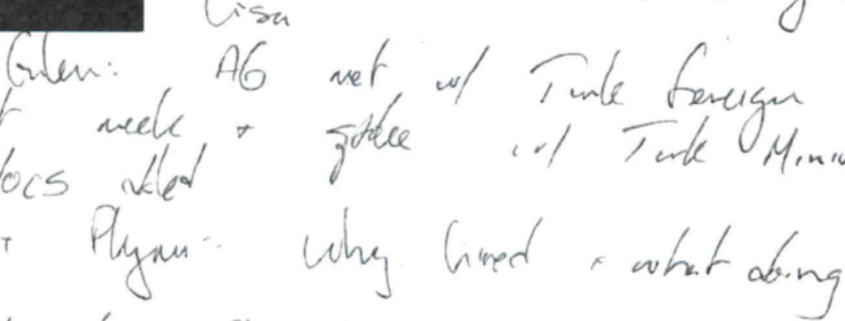 Lisa
Gulen: AG met w/ Turk foreign
week + spoke w/ Turk Minis
docs
+ Flynn: why hired + what doing